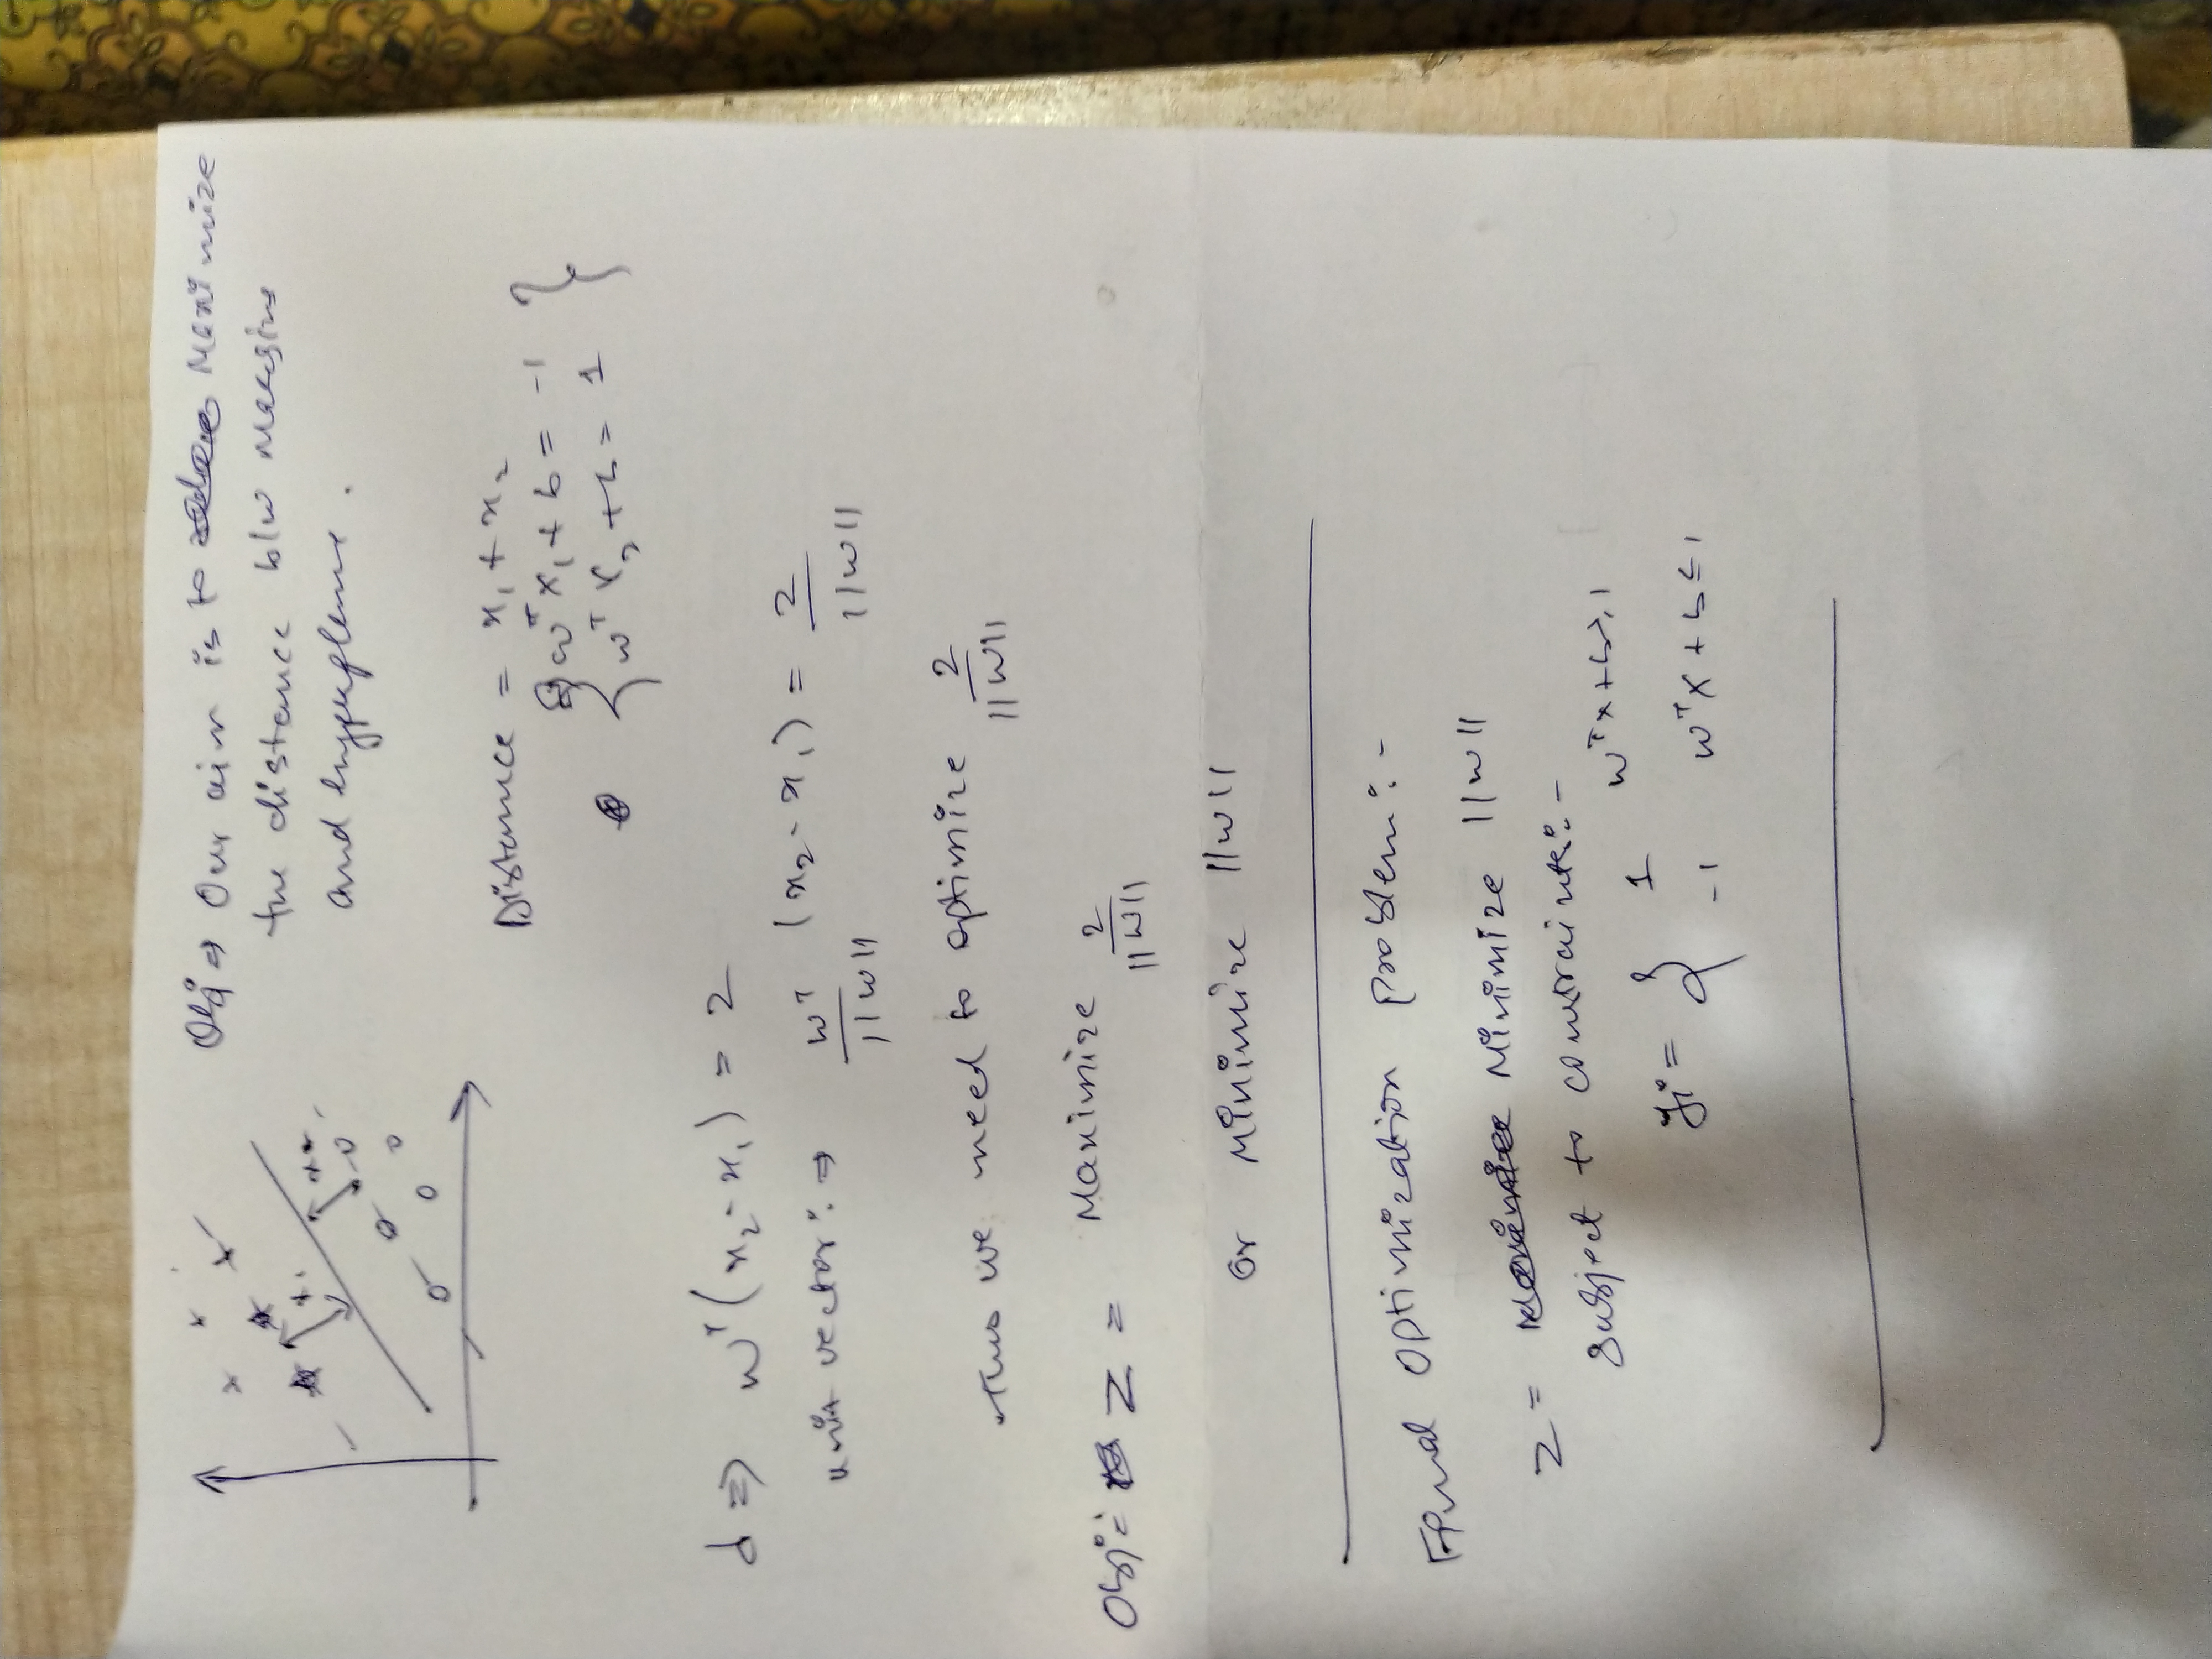 Obj ⇒ Our aim is to Maximize
the distance b/w Margins
and hyperplane.
x₁
Distance = x₁ + x₂
wᵀx₁ + b = -1
wᵀx₂ + b = 1
d ⇒ wᵀ(x₂ - x₁) = 2
unit vector: ⇒ wᵀ/||w|| (x₂ - x₁) = 2/||w||
Thus we need to optimize 2/||w||
Obj: Z = Maximize 2/||w||
Or Minimize ||w||
Final Optimization problem:-
Z = Minimize ||w||
Subject to constraints:-
yi = { 1 wᵀx + b ≥ 1
-1 wᵀx + b ≤ 1